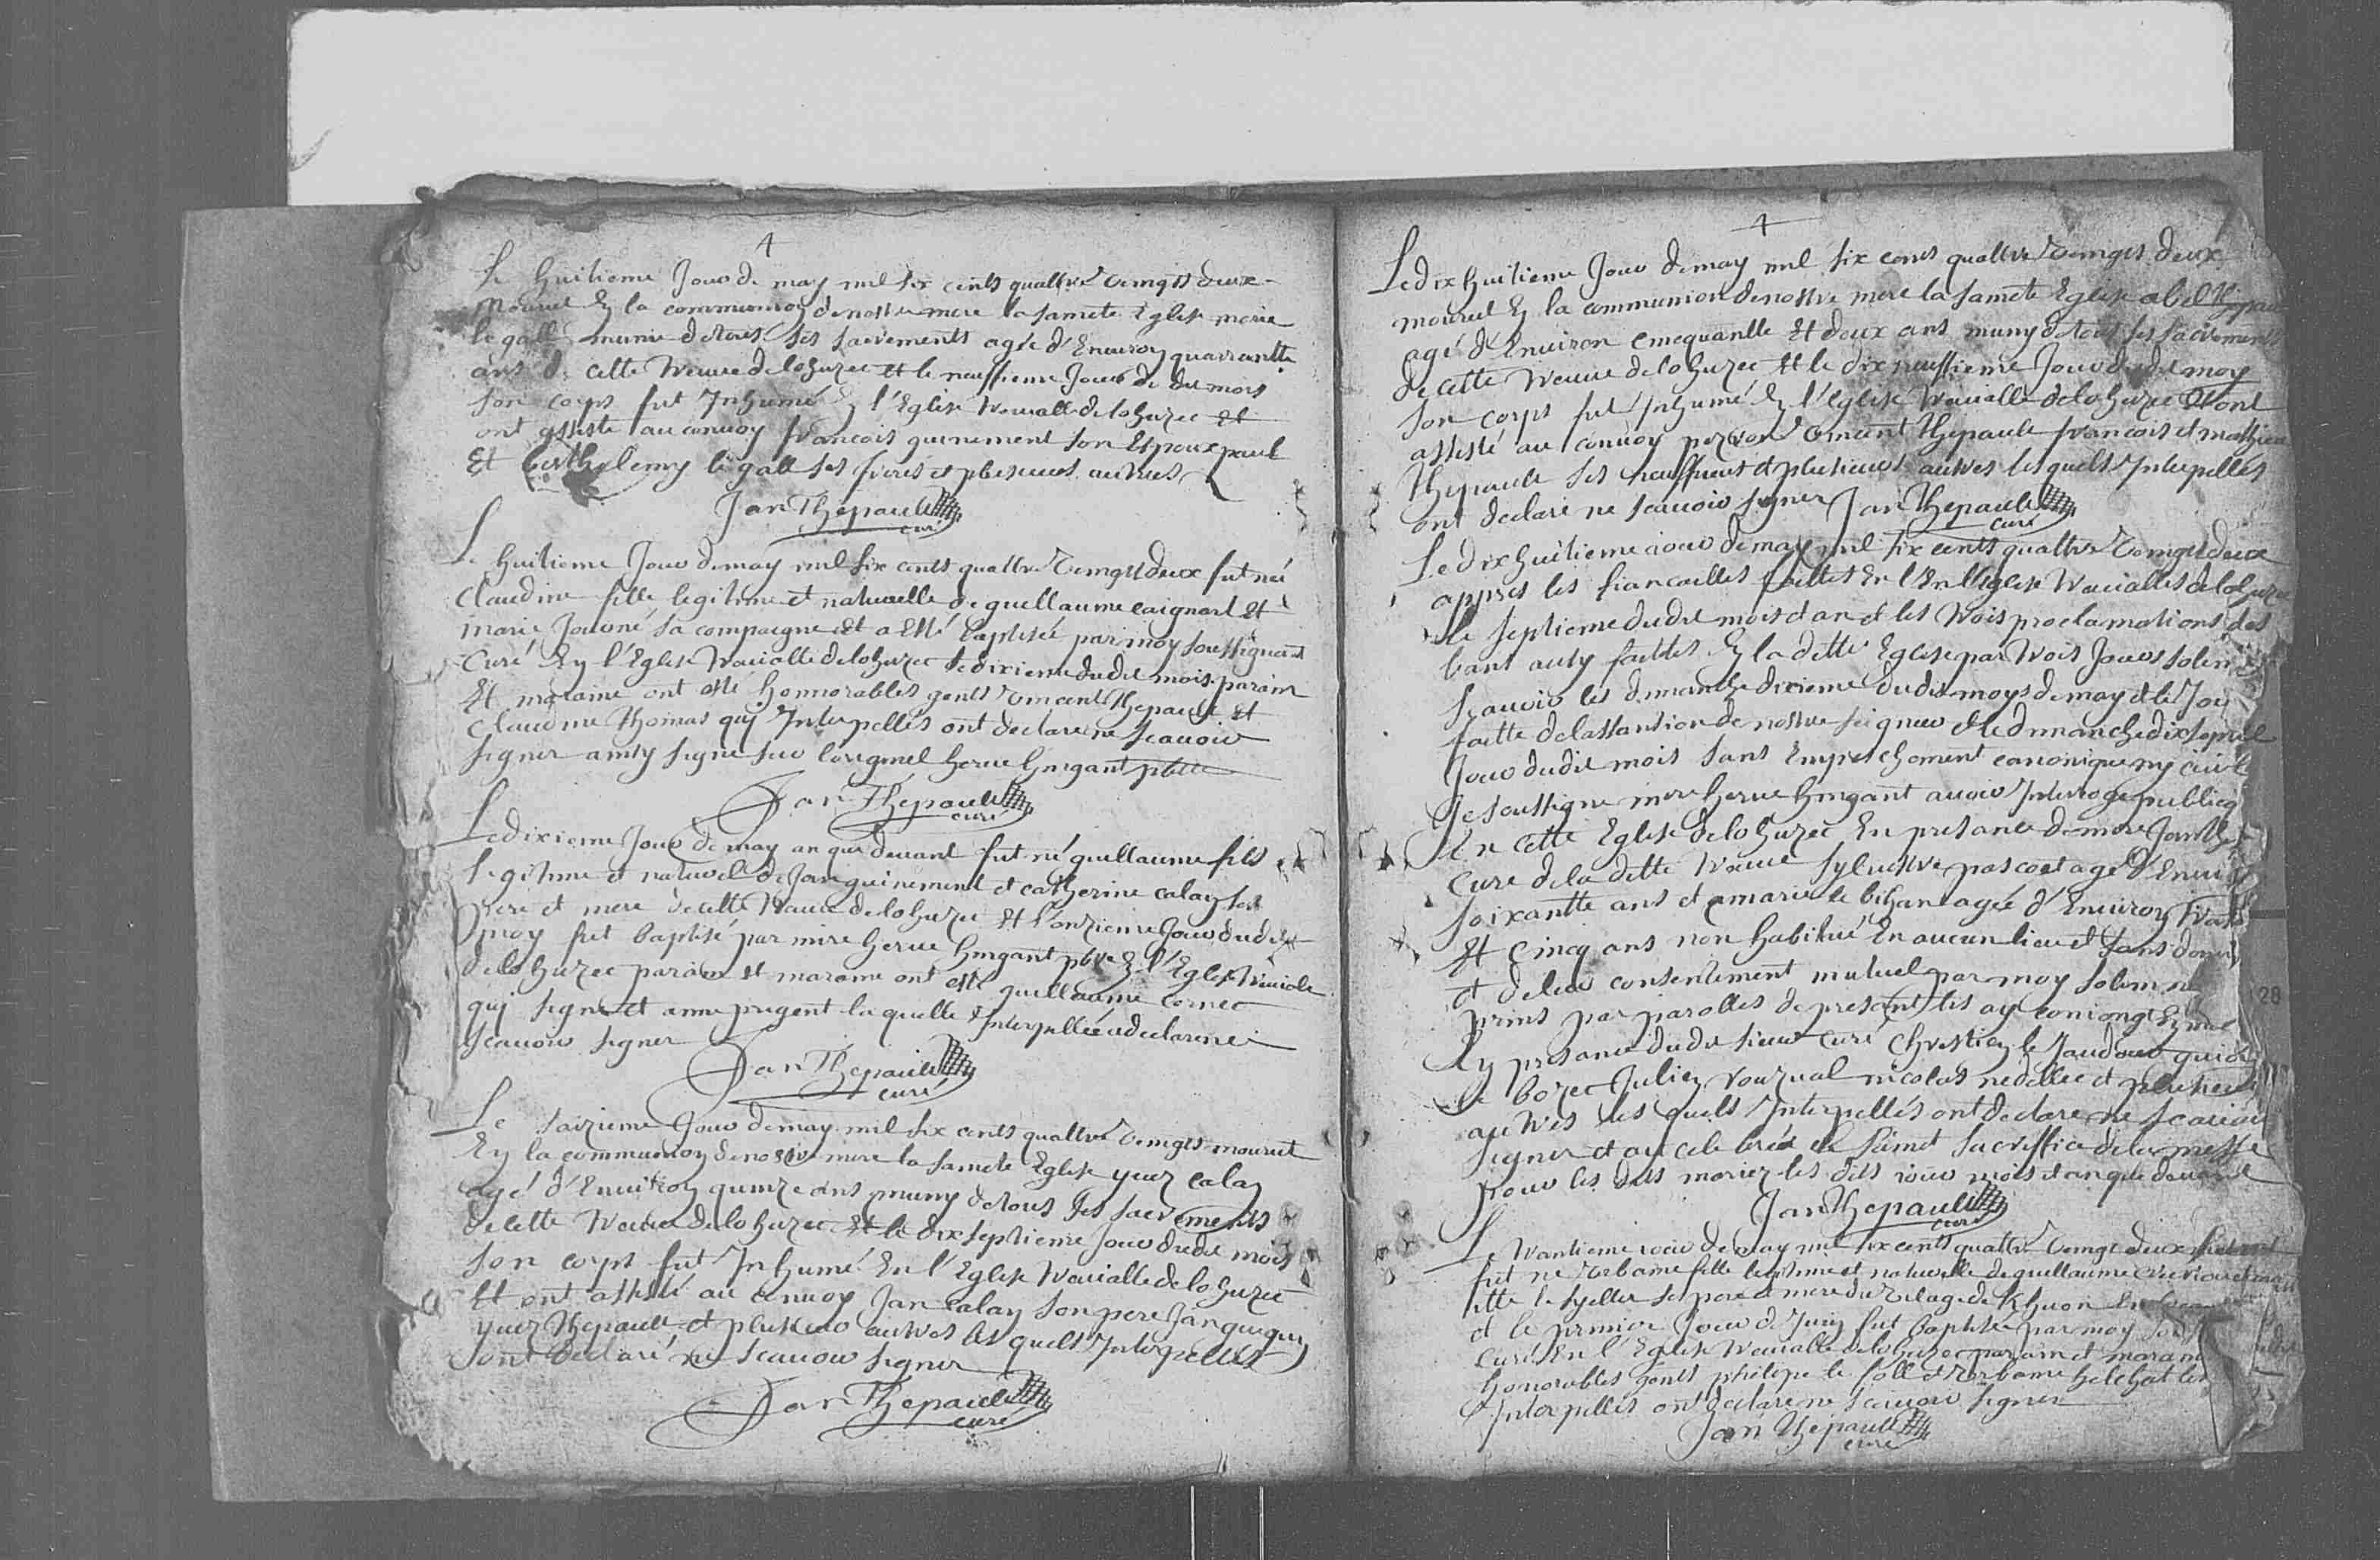 4
Le huitieme Jour de may mil six cents quattre vingts deux
mourut En la communion de nostre mere la saincte Eglise marie
le gall munie de tous ses sacrements agée d'Environ quarrantte
ans de cette treuue de lohuzec Et le neuffieme Jour du dit mois
son corps fut Inhumé En l'Eglise treuialle de lohuzec Et
ont assisté au conuoy francois guinement son Espoux paul
Et berthelemy le gall ses freres et plusieurs autres
Jan Thepault
curé
Le huitieme Jour de may mil six cents quattre vingts deux fut née
Claudine fille legitime et naturelle de guellaume caignart Et
marie Jouoné sa compaigne et a Esté baptisée par moy soussignant
Curé En l'Eglise treuialle de lohuzec le dixieme dudit mois parain
Et maraine ont esté honnorables gents vincent Thepault Et
Claudine Thomas qui Interpellés ont declaré ne scauoir
signer ainsy signé sur l'original herue hingant pbtre
Jan Thepault
curé
Le dixieme Jour de may an que deuant fut né guellaume fils
legitime et naturel de Jan guinement et catherine calay ses
pere et mere de cette treuue de lohuzec Et l'onzieme Jour dudit
moy fut baptisé par mire herue hingant pbre En l'Eglise treuialle
de lohuzec parain et maraine ont esté guellaume cornec
qui signe et anne prigent la quelle Interpellée a declaré ne
scauoir signer
Jan Thepault
curé
Le saizieme Jour de may mil six cents quattre vingts mourut
En la communion de nostre mere la saincte Eglise yuez calay
agé d'Enuiron quinze ans muny de tous ses sacrements
de cette treuue de lohuzec Et le dix septieme Jour dudit mois
son corps fut Inhumé En l'Eglise treuialle de lohuzec
Et ont assisté au conuoy Jan calay son pere Jan guiguen
yuez Thepault et plusieurs autres les quels Interpellés
ont declaré ne scauoir signer
Jan Thepault
curé
4
Le dix huitieme Jour de may mil six cents quattre vingts deux
mourut En la communion de nostre mere la saincte Eglise abel
agé d'Enuiron cincquantte Et deux ans muny de tous ses sacrements
de cette treuue de lohuzec Et le dix neuffieme Jour dudit moy
son corps fut Inhumé En l'eglise treuialle de lohuzec Et ont
assisté au conuoy vincent Thepault francois et mathieu
Thepault ses neuffueus et plusieurs autres les quels Interpellés
ont declaré ne scauoir signer Jan Thepault
curé
Le dix huitieme iour de may mil six cents quattre vingts deux
appres les fiancailles faittes En l'En l'Eglise treuialles de lohuzec
le septieme dudit mois et an et les trois proclamations des
bans ausy faittes En la ditte Eglise par trois Jours solen
scauoir les dimanche dixieme dudit moys de may et le Jou
faitte de lassantion de nostre seigneur et le dimanche dix sept
Jour dudit mois sans Empeschement canonique ny ciuil
Je soussigne mire herue hingant auoir Interogé publicq
En cette Eglise de lohuzec En presance de mire Jan
Curé de la ditte treuue syluestre pascoet agé d'Enui
soixantte ans et marie le bihan agée d'Enuiron
Et cincq ans non habitué En aucun lieu et sans
et de leur consentement mutuel par moy solemn
prins par parolles de presant les ay conioingt
En presance dudit sieur curé Chrestien le Jaudouin
le bozec Julien rouzual nicolas nedellec et plusieurs
autres les quels Interpellés ont declaré ne scauoir
signer et ay celebrée le sainct sacriffice de la messe
pour les dits mariez les dits iour mois et an que deuant
Jan Thepault
curé
Le trantieme iour de may mil six cents quattre vingt deux
fut né vrbaine fille legitime et naturelle de guellaume
et le premier Jour de Juin fut baptisée par moy
Curé En l'Eglise treuialle de lohuzec parain et maraine
honorables gents phelipe le foll et vrbaine
Interpellés ont declaré ne scauoir signer
Jan Thepault
curé
28